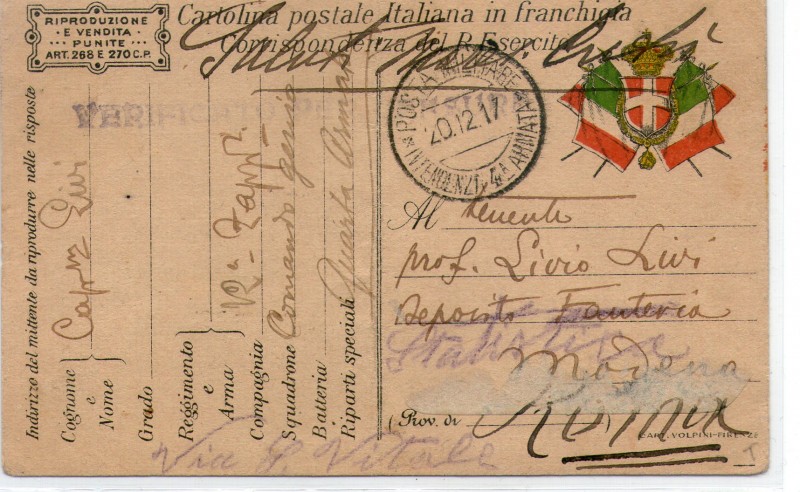 RIPRODUZIONE
E VENDITA
PUNITE
ART. 268 E 270 C.P.
Cartolina postale Italiana in franchigia
Corrispondenza del R. Esercito
Saluti
VERIFICATO PER CENSURA
POSTA MILITARE
20.12.17
INTENDENZA 4A ARMATA
Al Tenente
prof. Livio Livi
Deposito Fanteria
Modena
(Prov. di Roma
CART. VOLPINI-FIRENZE
Via S. Vitale
Indirizzo del mittente da riprodurre nelle risposte
Cognome e Nome
Livi
Grado
Reggimento e Arma
Compagnia
Squadrone
Batteria
Riparti speciali
Comando genio
Quarta Armata